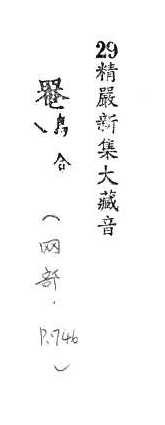 29精嚴新集大藏音
罨烏合（网部．P.746）